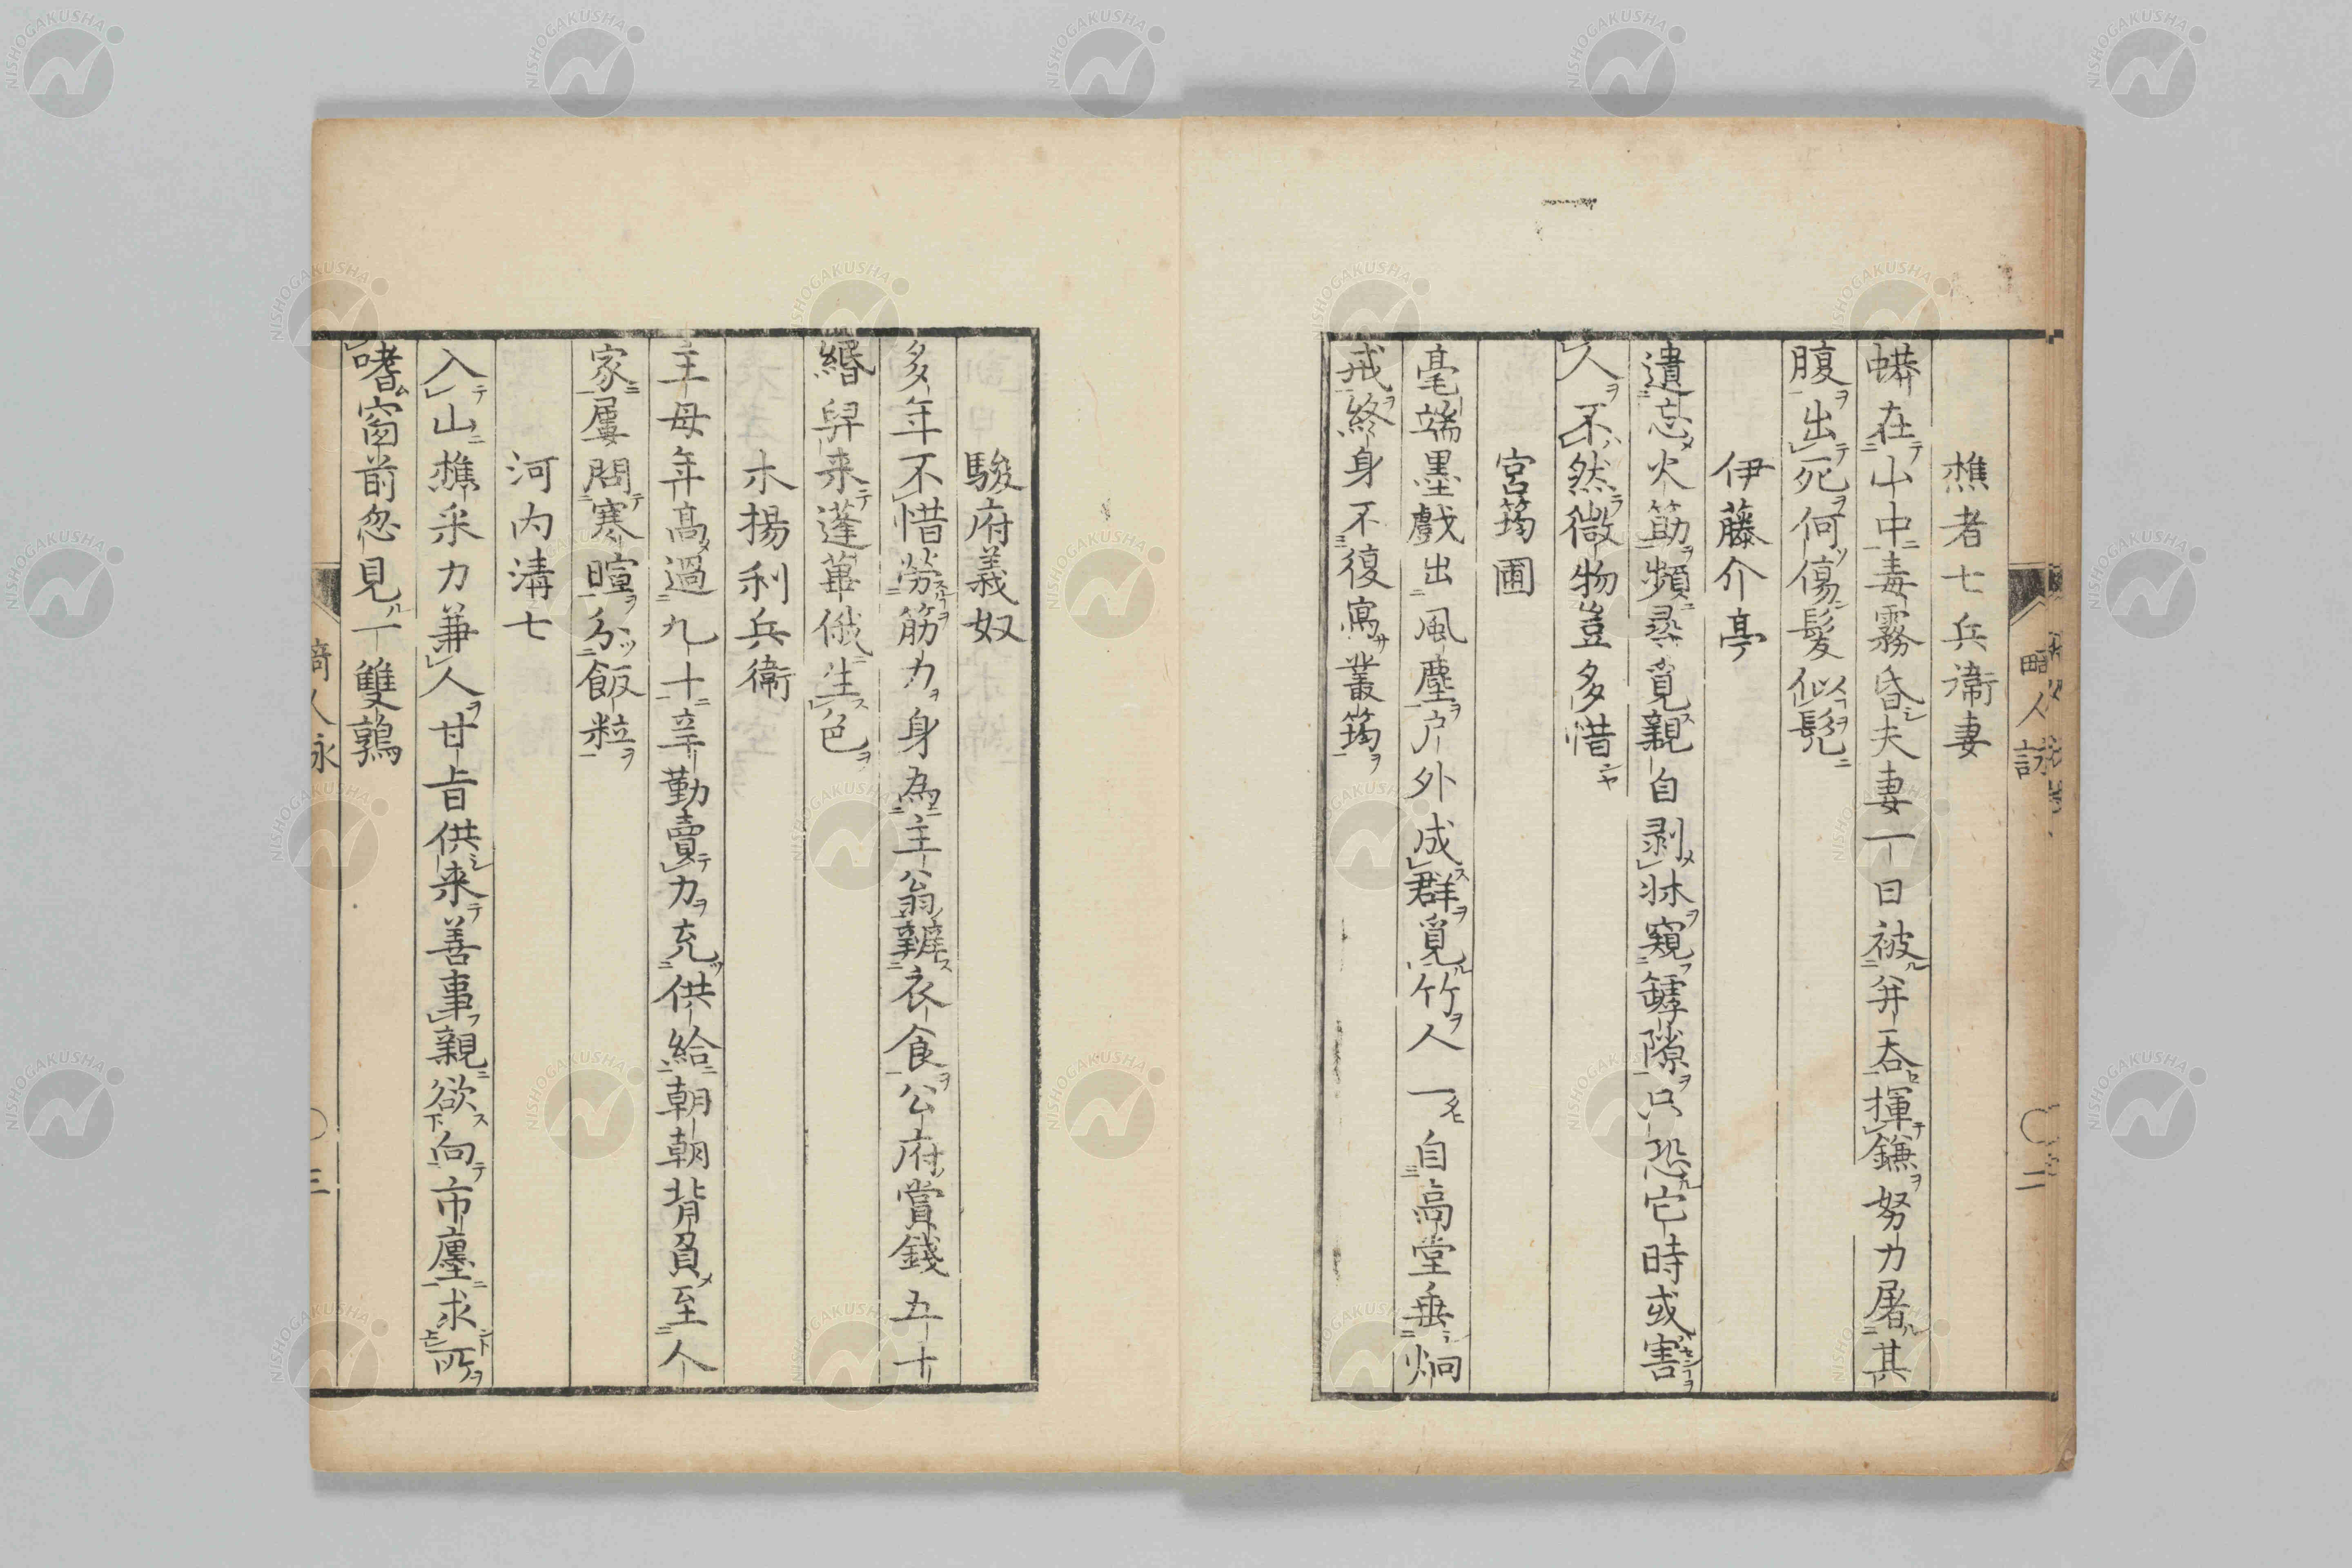 樵者七兵衞妻
蟒在山中毒霧昏夫妻一日被并呑揮鎌努力屠其
腹出死何傷髮似髡
伊藤介亭
遺忘火筯頻尋覓親自剥牀窺罅隙只恐它時或害
人不然微物豈多惜
宮筠圃
毫端墨戲出風塵户外成群覓竹人一自高堂垂炯
戒終身不復寫叢筠
駿府義奴
多年不惜勞筋力身為主翁辨衣食公府賞錢五十
緡舁来蓬蓽俄生色
木揚利兵衞
主母年高過九十辛勤賣力充供給朝朝背負至人
家屢問寒暄分飯粒
河内溝七
入山樵采力兼人甘旨供来善事親欲向市廛求所
嗜窗前忽見一雙鶉
畸人詠
〇二
畸人詠
〇三